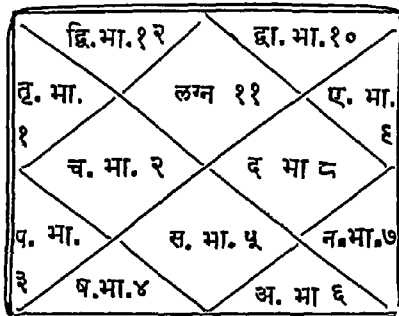 द्वि.भा.१२
द्वा. भा.१०
तृ. भा.
१
लग्न ११
ए. भा.
६
च. भा. २
द भा ८
प. भा.
३
स. भा. ५
न.भा.७
ष.भा.४
अ. भा ६